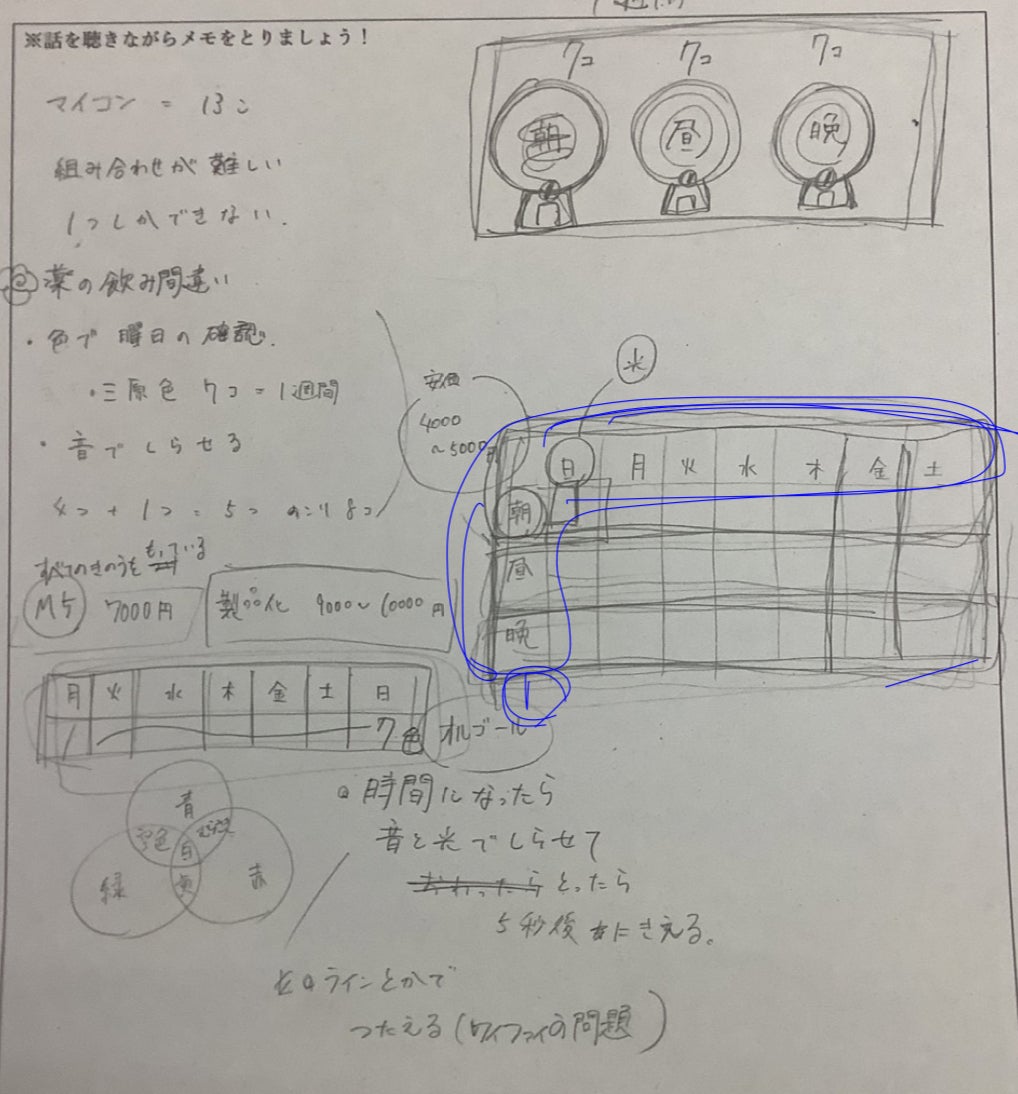 ※話を聴きながらメモをとりましょう！
マイコン = 13こ
組み合わせが難しい
1つしかできない.
薬の飲み間違い
・色で曜日の確認.
・三原色 7コ = 1週間
・音でしらせる
4つ + 1つ = 5つ のこり8つ
すべてのきのうをもっている
M5 7000円
製品化 9000〜10000円
7コ 7コ 7コ
朝 昼 晩
安価
4000
〜5000円
光
日 月 火 水 木 金 土
朝
昼
晩
月 火 水 木 金 土 日
7色
オルゴール
青
空色
白
緑
黄
赤
時間になったら
音と光でしらせて
とったら
5秒後にきえる。
ラインとかで
つたえる(ワイファイの問題)